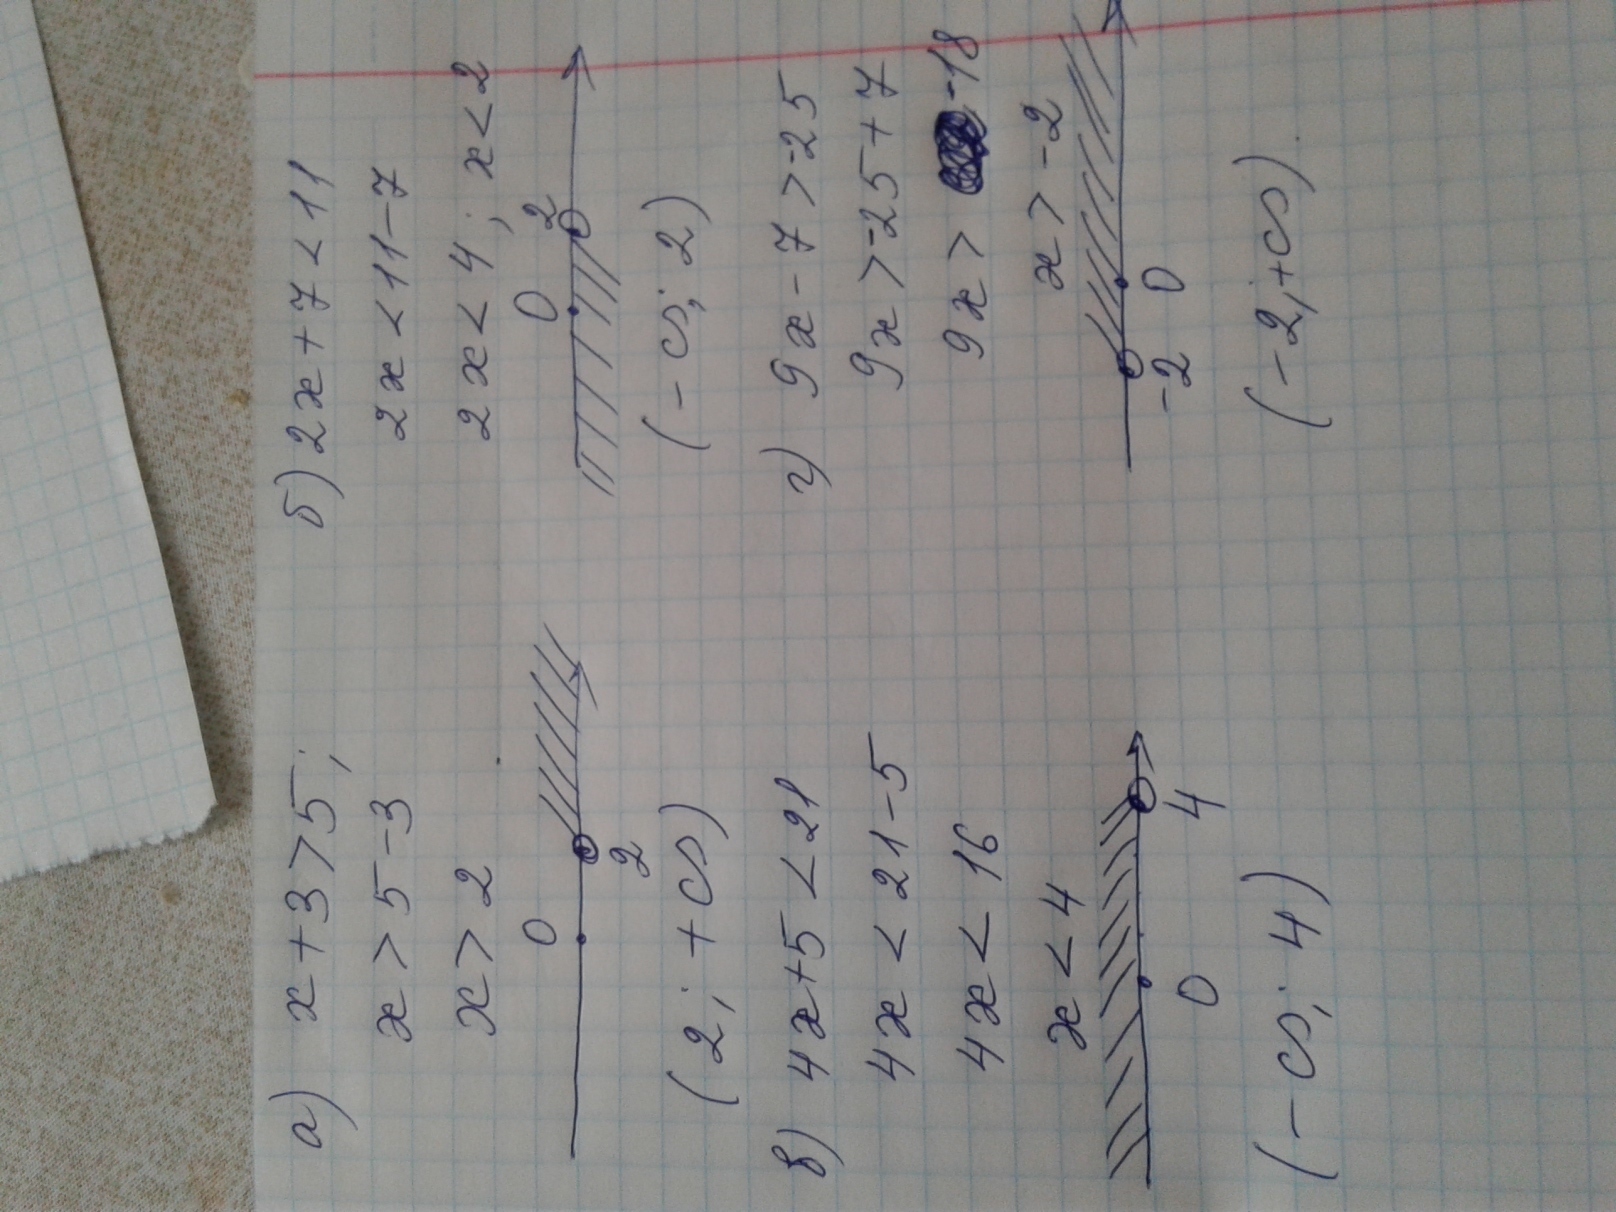 а) x+3>5;
x>5-3
x>2
0 2
(2;+∞)
б) 2x+7<11
2x<11-7
2x<4; x<2
0 2
(-∞; 2)
в) 4x+5<21
4x<21-5
4x<16
x<4
0 4
(-∞; 4)
г) 9x-7>-25
9x>-25+7
9x> -18
x>-2
-2 0
(-2;+∞).